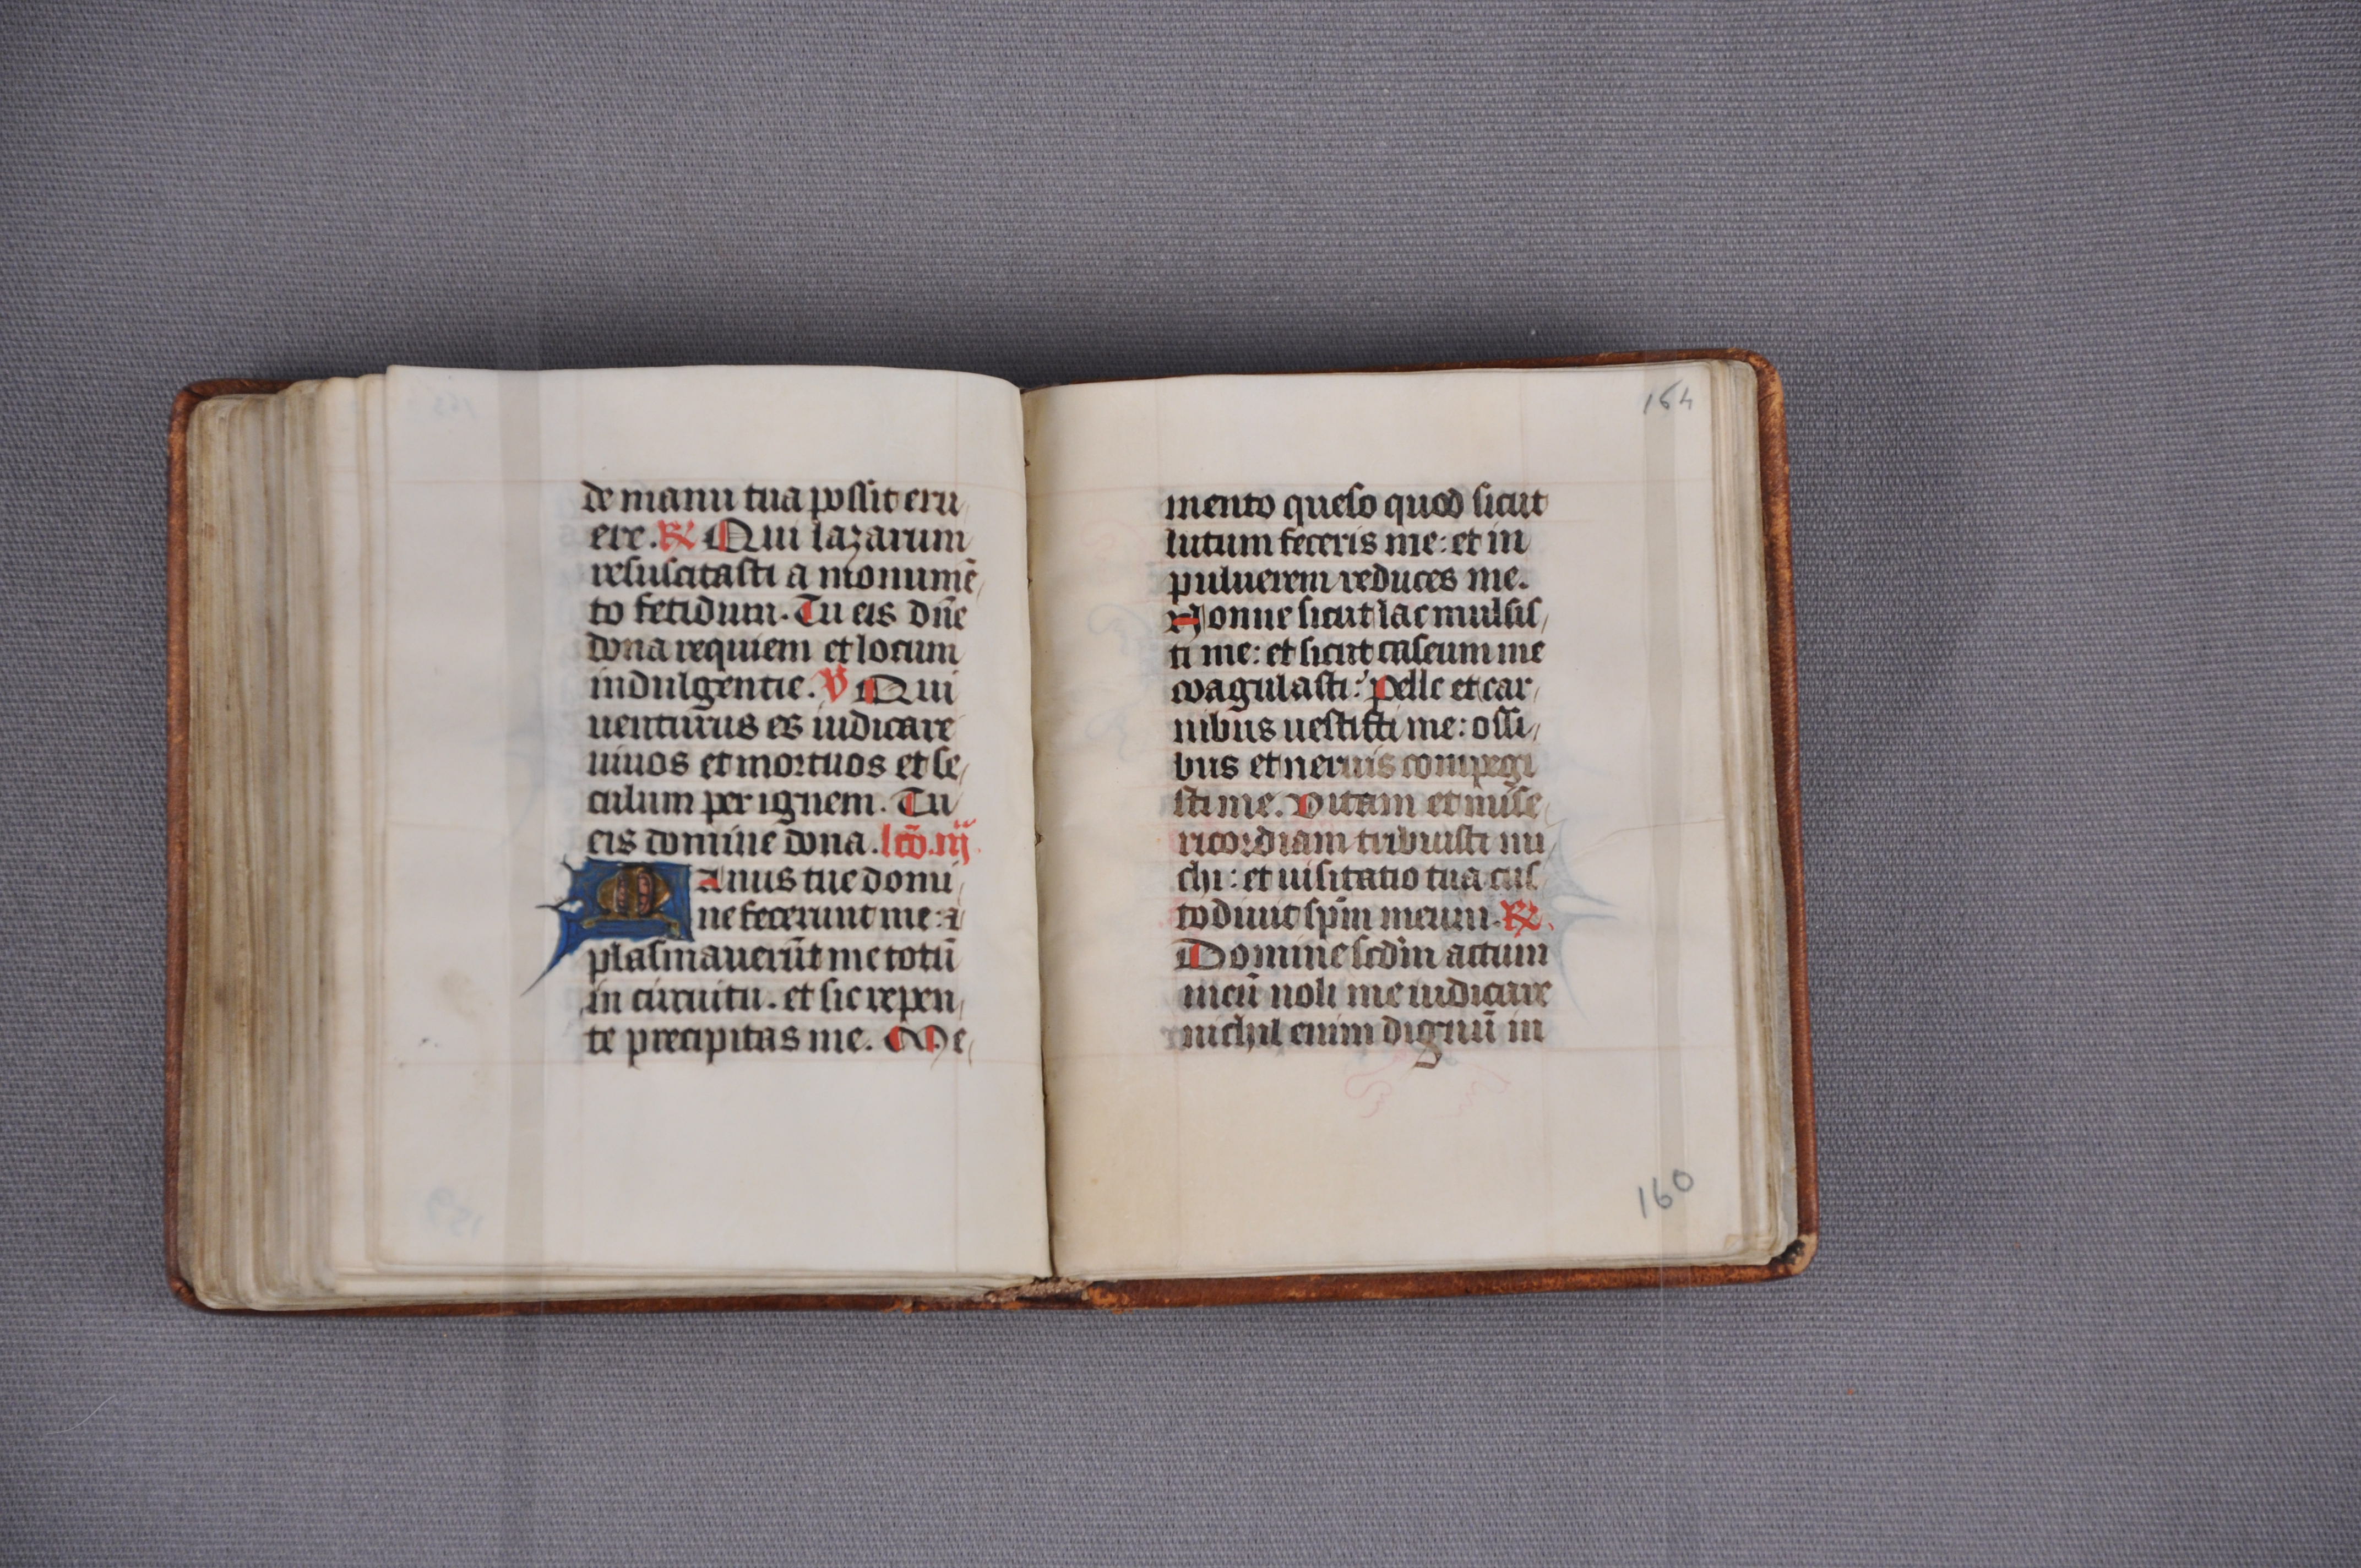 de manu tua possit eru
ere. ℟ Qui lazarum
resuscitasti a monumē
to fetidum. Tu eis dn̄e
dona requiem et locum
indulgentie. ℣ Qui
uenturus es iudicare
uiuos et mortuos et se
culum per ignem. Tu
eis domine dona. lcō. iij
Manus tue domi
ne fecerunt me: ⁊
plasmauerūt me totū
in circuitu. et sic repen
te precipitas me. Me
164
mento queso quod sicut
lutum feceris me: et in
puluerem reduces me.
Nonne sicut lac mulsis
ti me: et sicut caseum me
coagulasti: Pelle et car
nibus uestisti me: ossi
bus et neruis compegi
sti me. Vitam et mise
ricordiam tribuisti mi
chi: et uisitatio tua cus
todiuit spm̄ meum. ℟
Domine scdm̄ actum
meū noli me iudicare
nichil enim dignū in
160